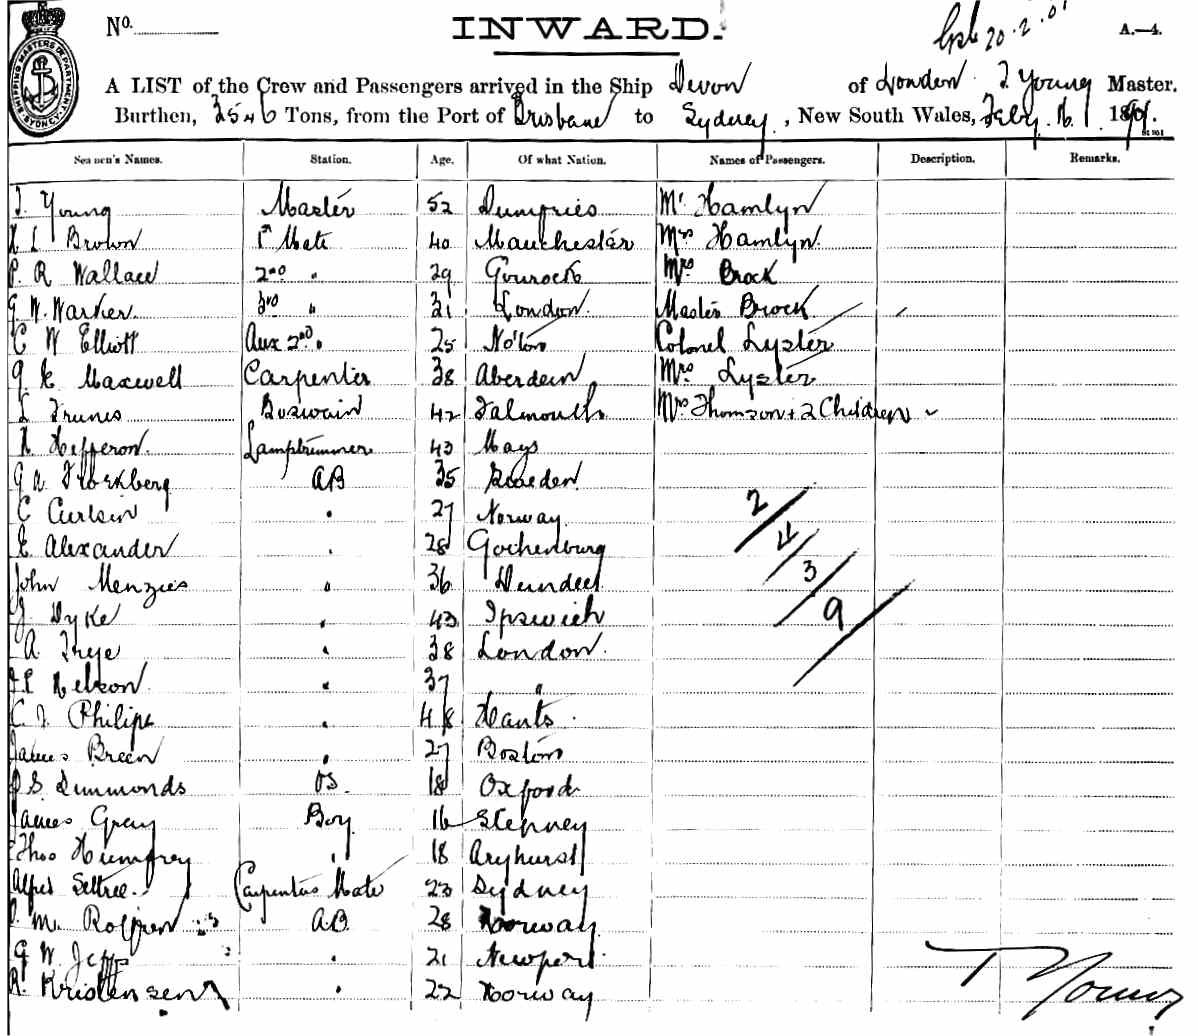 No.
INWARD.
20.2.01
A.—4.
SHIPPING MASTERS DEPARTMENT SYDNEY
A LIST of the Crew and Passengers arrived in the Ship Devon of London T Young Master.
Burthen, 3546 Tons, from the Port of Brisbane to Sydney, New South Wales, Feby. 16. 1901.
Seamen's Names. Station. Age. Of what Nation. Names of Passengers. Description. Remarks.
T. Young Master 52 Dumfries Mr Hamlyn
L Brown 1st Mate 40 Manchester Mrs Hamlyn
P. R Wallace 2nd " 29 Gourock Mrs Brock
G. W. Warker 3rd " 31 London. Master Brock
C W Elliott Aux 2nd " 25 Colonel Lyster
G. K Maxwell Carpenter 38 Aberdein Mrs Lyster
Boswain 42 Falmouth Mrs Thomson + 2 Children
Hefferon. Lamptrimmer 43 Mayo
AB 35 Sweden
C Carlsen " 27 Norway 2
E. Alexander " 28 Gothenburg 4
John Menzies " 36 Dundee 3
J. Dyke " 43 Ipswich 9
A. Frye " 38 London.
Nelson " 37 "
C. J. Philips " 48 Hants.
James Breen " 27 Boston
S. Dummonds OS. 18 Oxford
James Gray Boy 16 Stepney
Thos Humfrey " 18
Alfred Settree. Carpenters Mate 23 Sydney
M. A.B. 28 Norway
G W. Jepps " 21 Newport.
R. Kristensen " 22 Norway
T Young